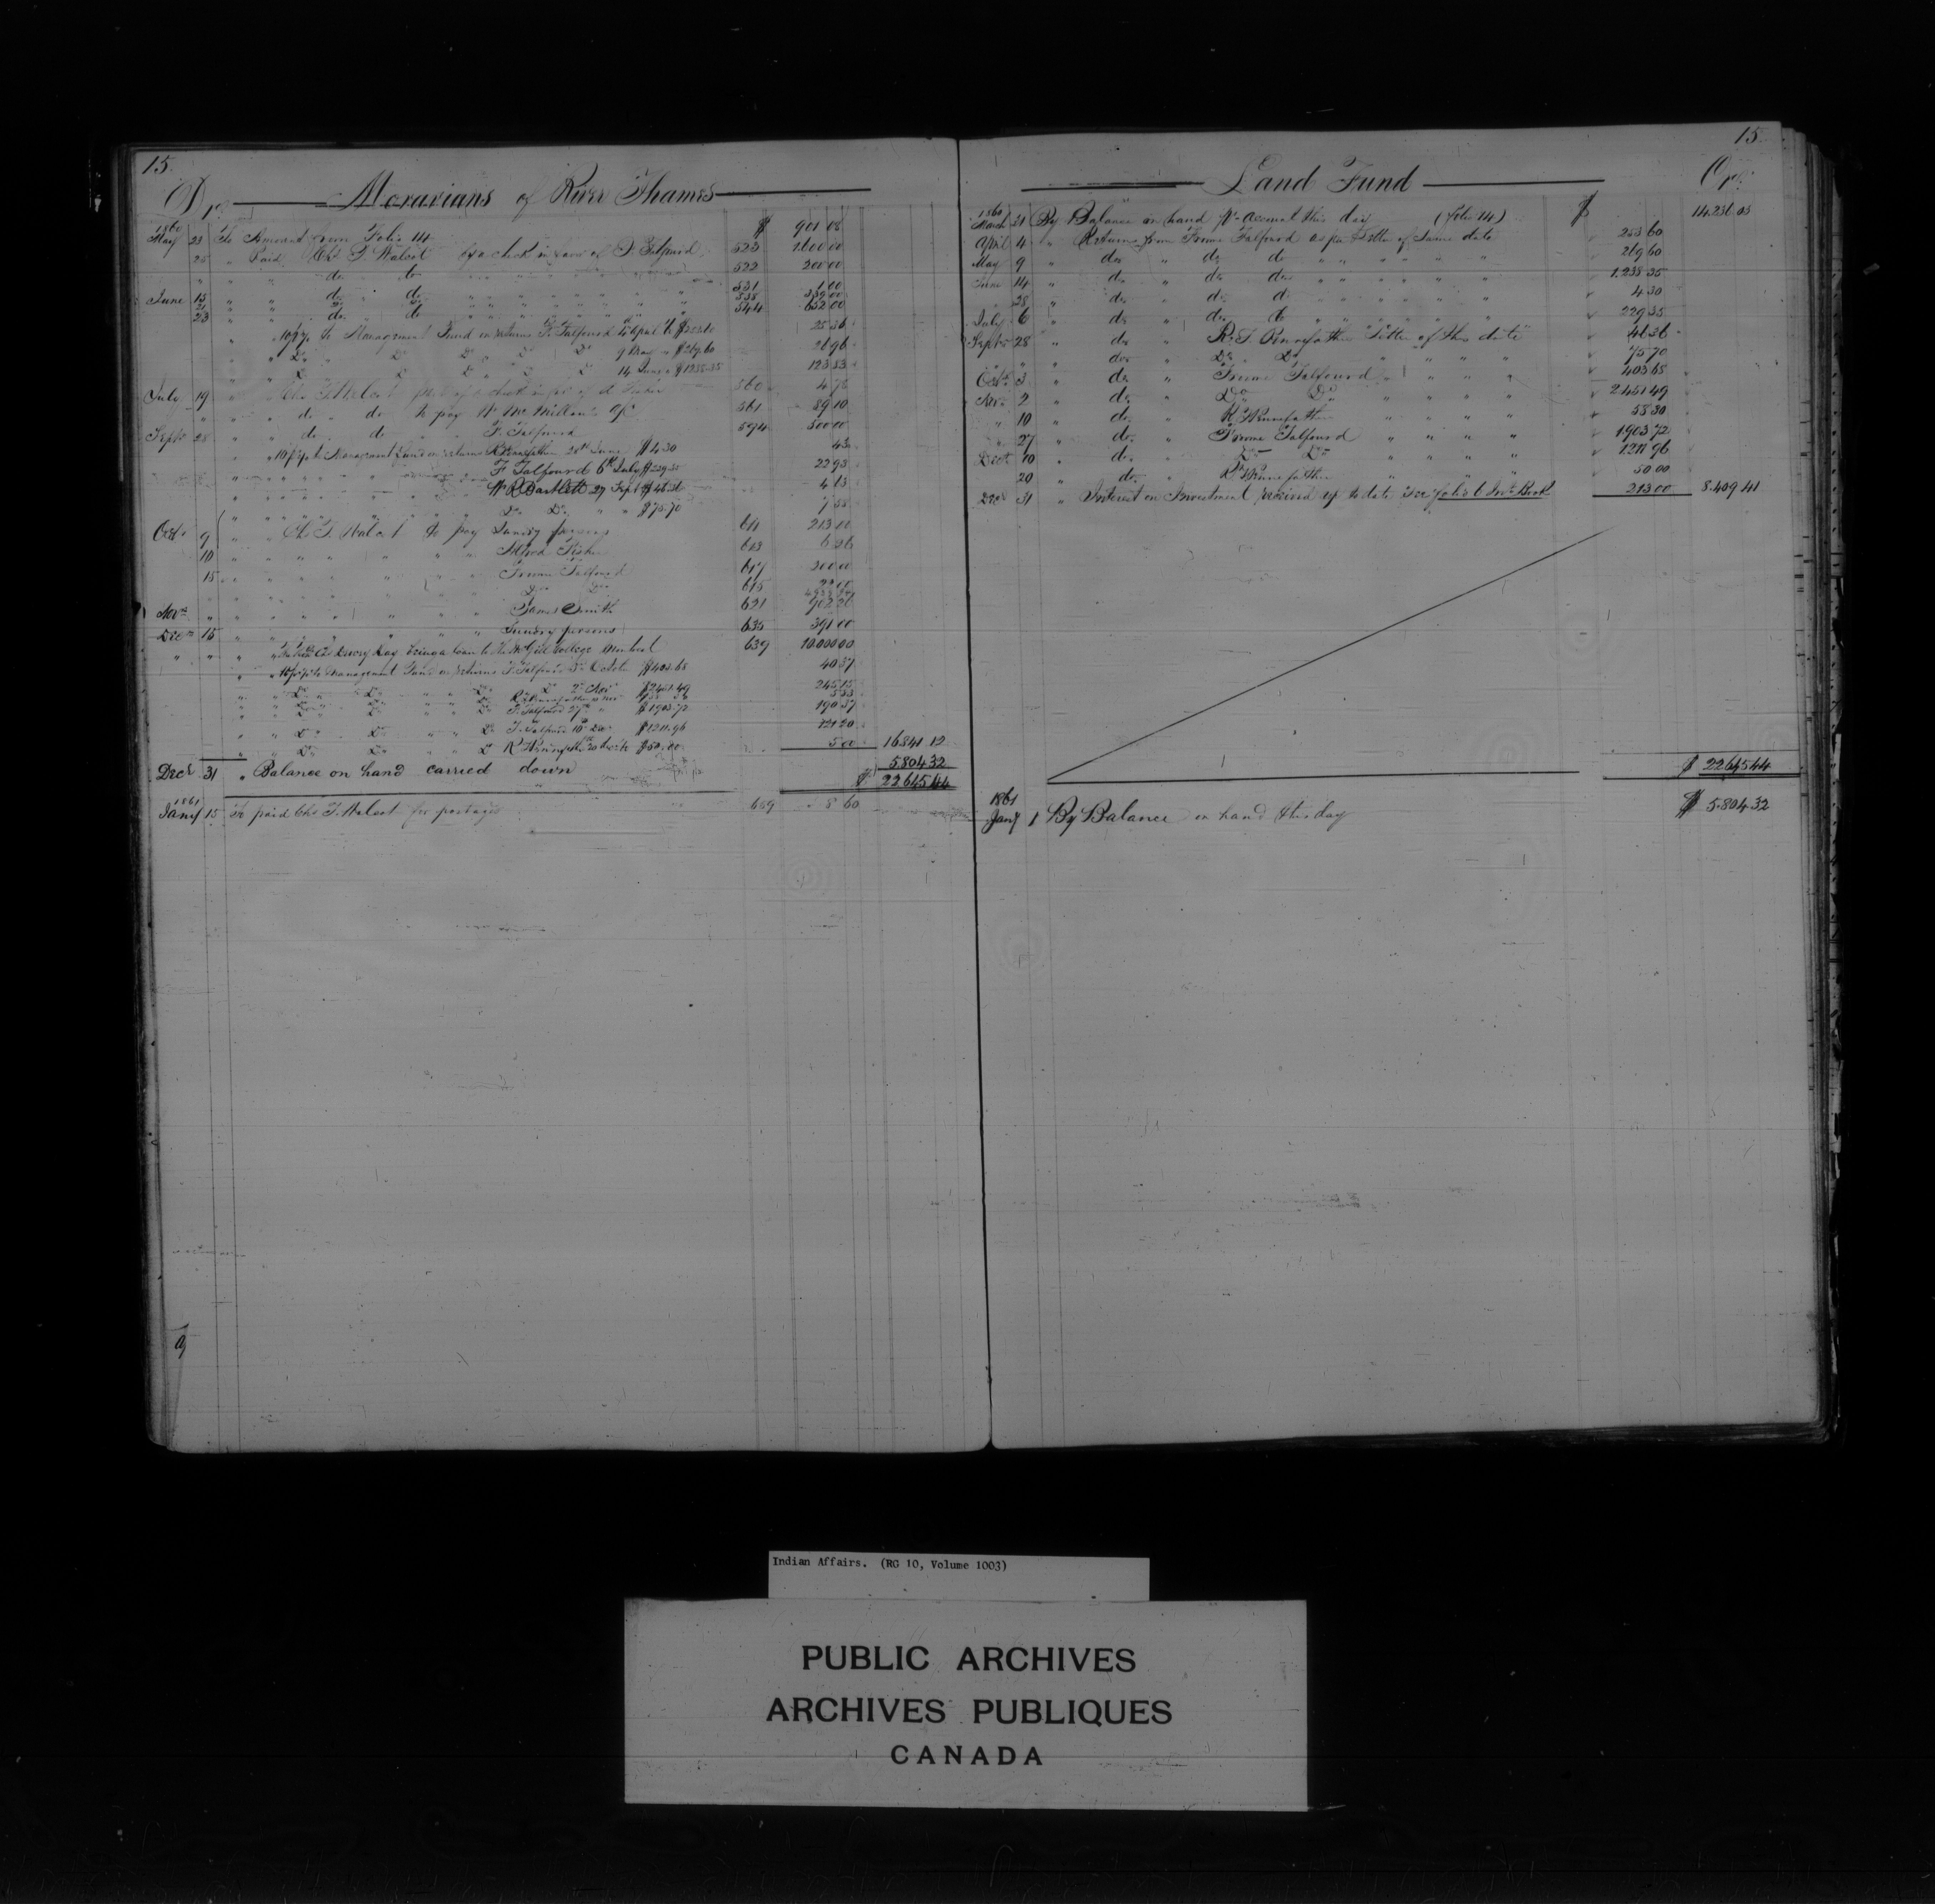 15.
Dr. Moravians of River Thames
1860
May 23 To Amount from Folio 14 $ 901 08
25 " Paid Chs T. Walcot for a check in favor of F. Talfourd 523 1600 00
" " do do 522 200 00
" " do do 531 1 00
June 15 " " do do 538 339 00
21 " " do do 544 632 00
23 " 10 p% to Management Fund on returns F. Talfourd 4 April $253.60 25 36
" " Do Do Do Do 9 May " $269.60 26 96
" " Do Do Do Do 14 June " $1238.35 123 83
July 19 " Chs T. Walcot 560 4 75
" " do do to pay W. McMillan's a/c 561 89 10
Sept 28 " do do F. Talfourd 594 500 00
" 10 p% to Management Fund on returns R. Pennefather 28th June $4.30 43
" F Talfourd 6th July $229.35 22 93
" W R Bartlett 27 Sept $46.36 4 63
" Do Do " " $75.70 7 55
Oct 9 " Ch T. Walcot to pay Sundry persons 611 213 00
10 " " " Alfred Fisher 613 6 26
15 " " " Froome Talfourd 617 200 00
" " " Do Do 615 22 00
Nov " " " James Smith 621 902 26
Dec 15 " " " Sundry persons 635 391 00
" " " being a loan to the McGill College Montreal 639 10.000 00
" 10 p% to Management Fund on returns F. Talfourd 3 Octob $403.65 40 37
" " Do " Do " " Do Do 2 Nov $2451.49 245 15
" " Do " Do " " Do R Pennefather 10 Nov 5 83
" " Do " Do " " Do F. Talfourd 27 " $1903.72 190 37
" " Do " Do " " Do F. Talfourd 10 Dec $1211.96 121 20
" " Do Do " " Do R Pennefather 20 Dec $50.00 5 00 16841.12
Decr 31 " Balance on hand carried down 5.804 32
$ 22645 44
1861
Jany 15 To paid Chs T. Walcot for postage 659 8 60
9
15
Land Fund Cr.
1860
March 31 By Balance on hand pr account this day (Folio 14) $ 14.236.03
April 4 " Return from Froome Talfourd as per Letter of same date 253 60
May 9 " do " do do " " " " " 269 60
June 14 " do " do do " " " " " 1.238 35
" 28 " do " do do " " " " " 4 30
July 6 " do " do do " " " " " 229 35
Sept 28 " do " R. T. Pennefather Letter of this date 46 36
" " do " Do Do " " " " 75 70
Oct 3 " do " Froome Talfourd " " " " 403 65
Nov 2 " do " Do Do " " " " 2451 49
" 10 " do " R Pennefather " " " " 58 30
" 27 " do " Froome Talfourd " " " " 1903 72
Dec 10 " do " Do Do " " " " 1211 96
20 " do " R Pennefather " " " 50 00
Dec 31 " Interest on Investment received up to date see folio 6 Invt Book 213 00 8.409 41
$ 22645 44
1861
Jany 1 By Balance on hand this day $ 5.804 32
Indian Affairs. (RG 10, Volume 1003)
PUBLIC ARCHIVES
ARCHIVES PUBLIQUES
CANADA